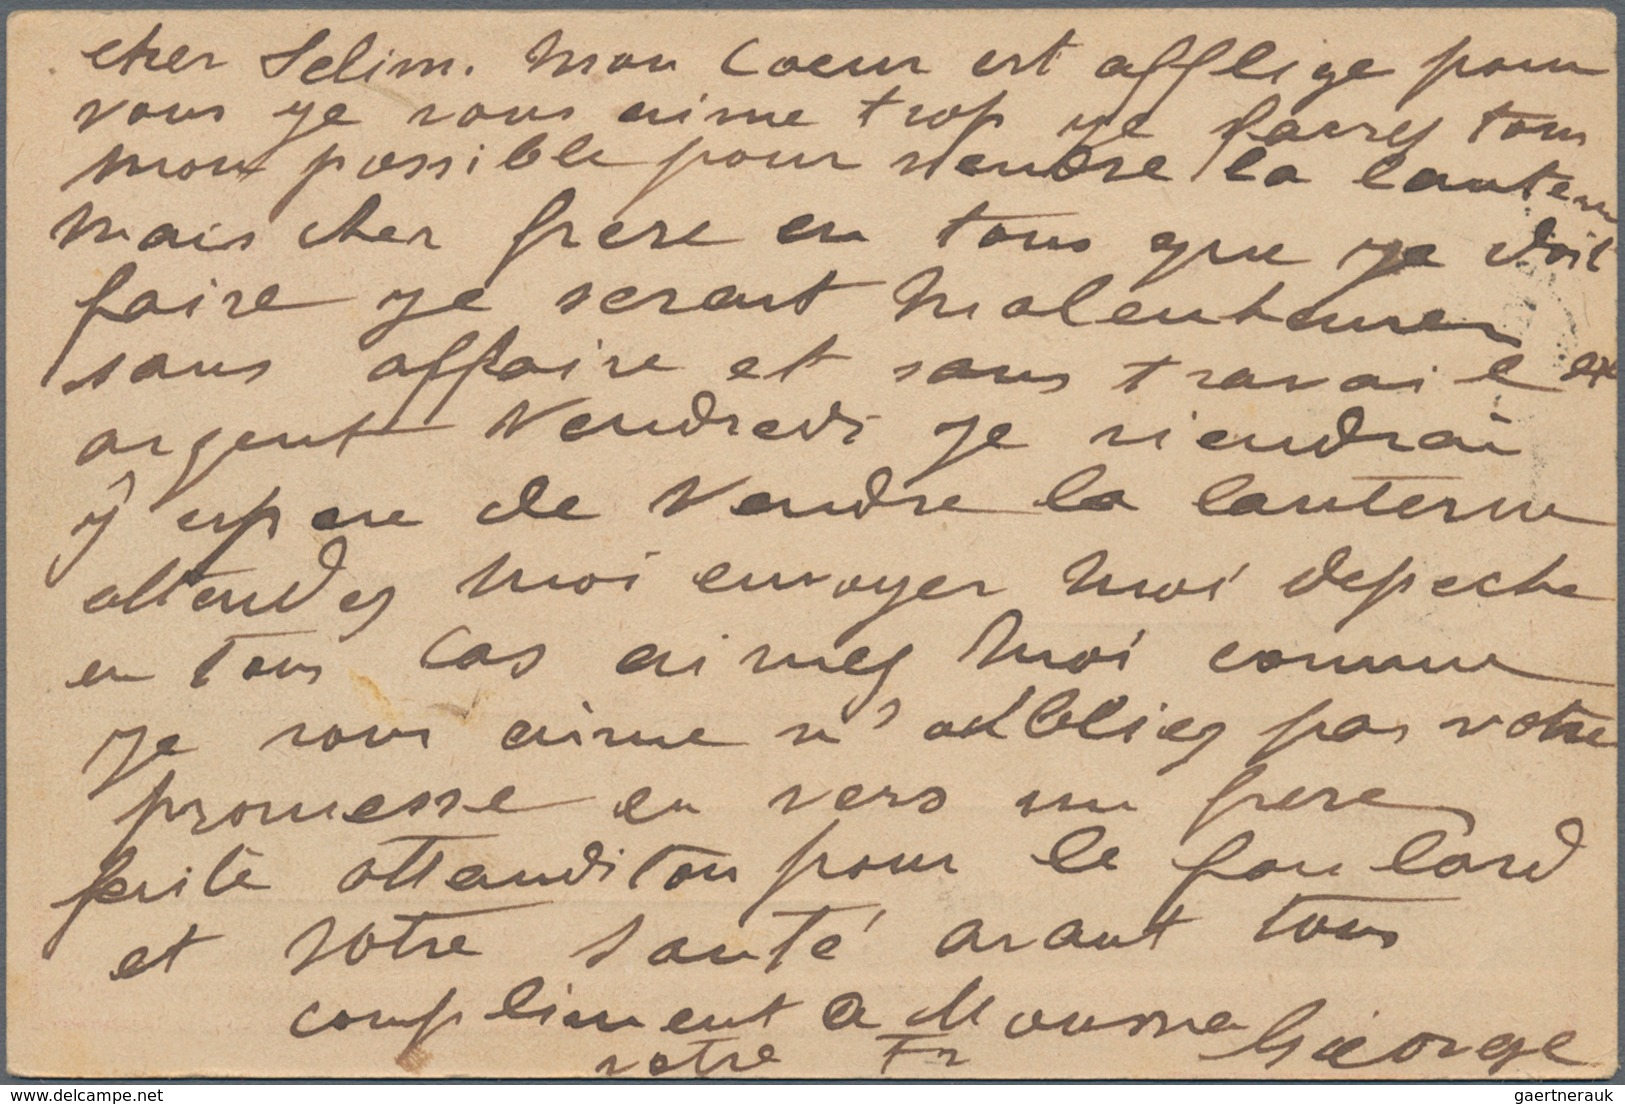 cher Selim. Mon coeur est afflige pour
vous je vous aime trop je faires tous
mon possible pour vendre la lantern
mais cher frere en tous que je doit
faire je serant malenheureu
sans affaire et sans travail
argent Vendredi je viendrai
j'espere de vendre la lanterne
attendes moi envoyer moi depeche
en tous cas aimes moi comme
je vous aime n'oublies pas votre
promesse en vers un frere
faite attendi ton pour le foulard
et votre santé avant tous
compliment a Moussa
votre Fr George
delcampe.net
gaertnerauk